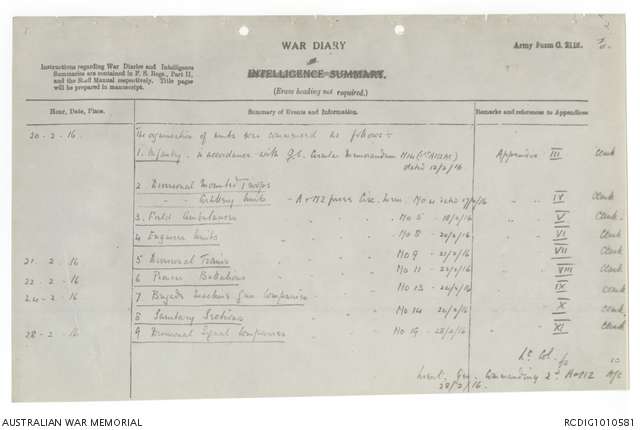 WAR DIARY
or
INTELLIGENCE SUMMARY.
(Erase heading not required.)
Army Form C. 2118.
Instructions regarding War Diaries and Intelligence
Summaries are contained in F. S. Regs., Part II,
and the Staff Manual respectively. Title pages
will be prepared in manuscript.
Hour, Date, Place. Summary of Events and Information. Remarks and references to Appendices
20-2-16. The organisation of units was commenced as follows:-
1. Infantry. in accordance with G.S. Circular Memorandum Appendix III
dated 18/2/16
2. Divisional Mounted Troops
" Artillery Units - A & NZ Force Circ. Mem. No 4 dated 17/2/16 " IV
3. Field Ambulances " No 5 - 18/2/16 " V
4 Engineer Units " No 8 - 20/2/16 " VI
21. 2. 16 5 Divisional Trains " No 9 - 21/2/16 " VII
22. 2. 16 6 Pioneer Battalions " No 11 - 22/2/16 " VIII
24-2-16 7 Brigade Machine Gun Companies " No 13 - 24/2/16 " IX
8 Sanitary Sections " No 14 24/2/16 " X
28-2-16 9 Divisional Signal Companies " No 19 - 28/2/16 " XI
Lt Col. for
Lieut. Gen. Commanding 2d A & NZ A/C
28/2/16.
AUSTRALIAN WAR MEMORIAL
RCDIG1010581